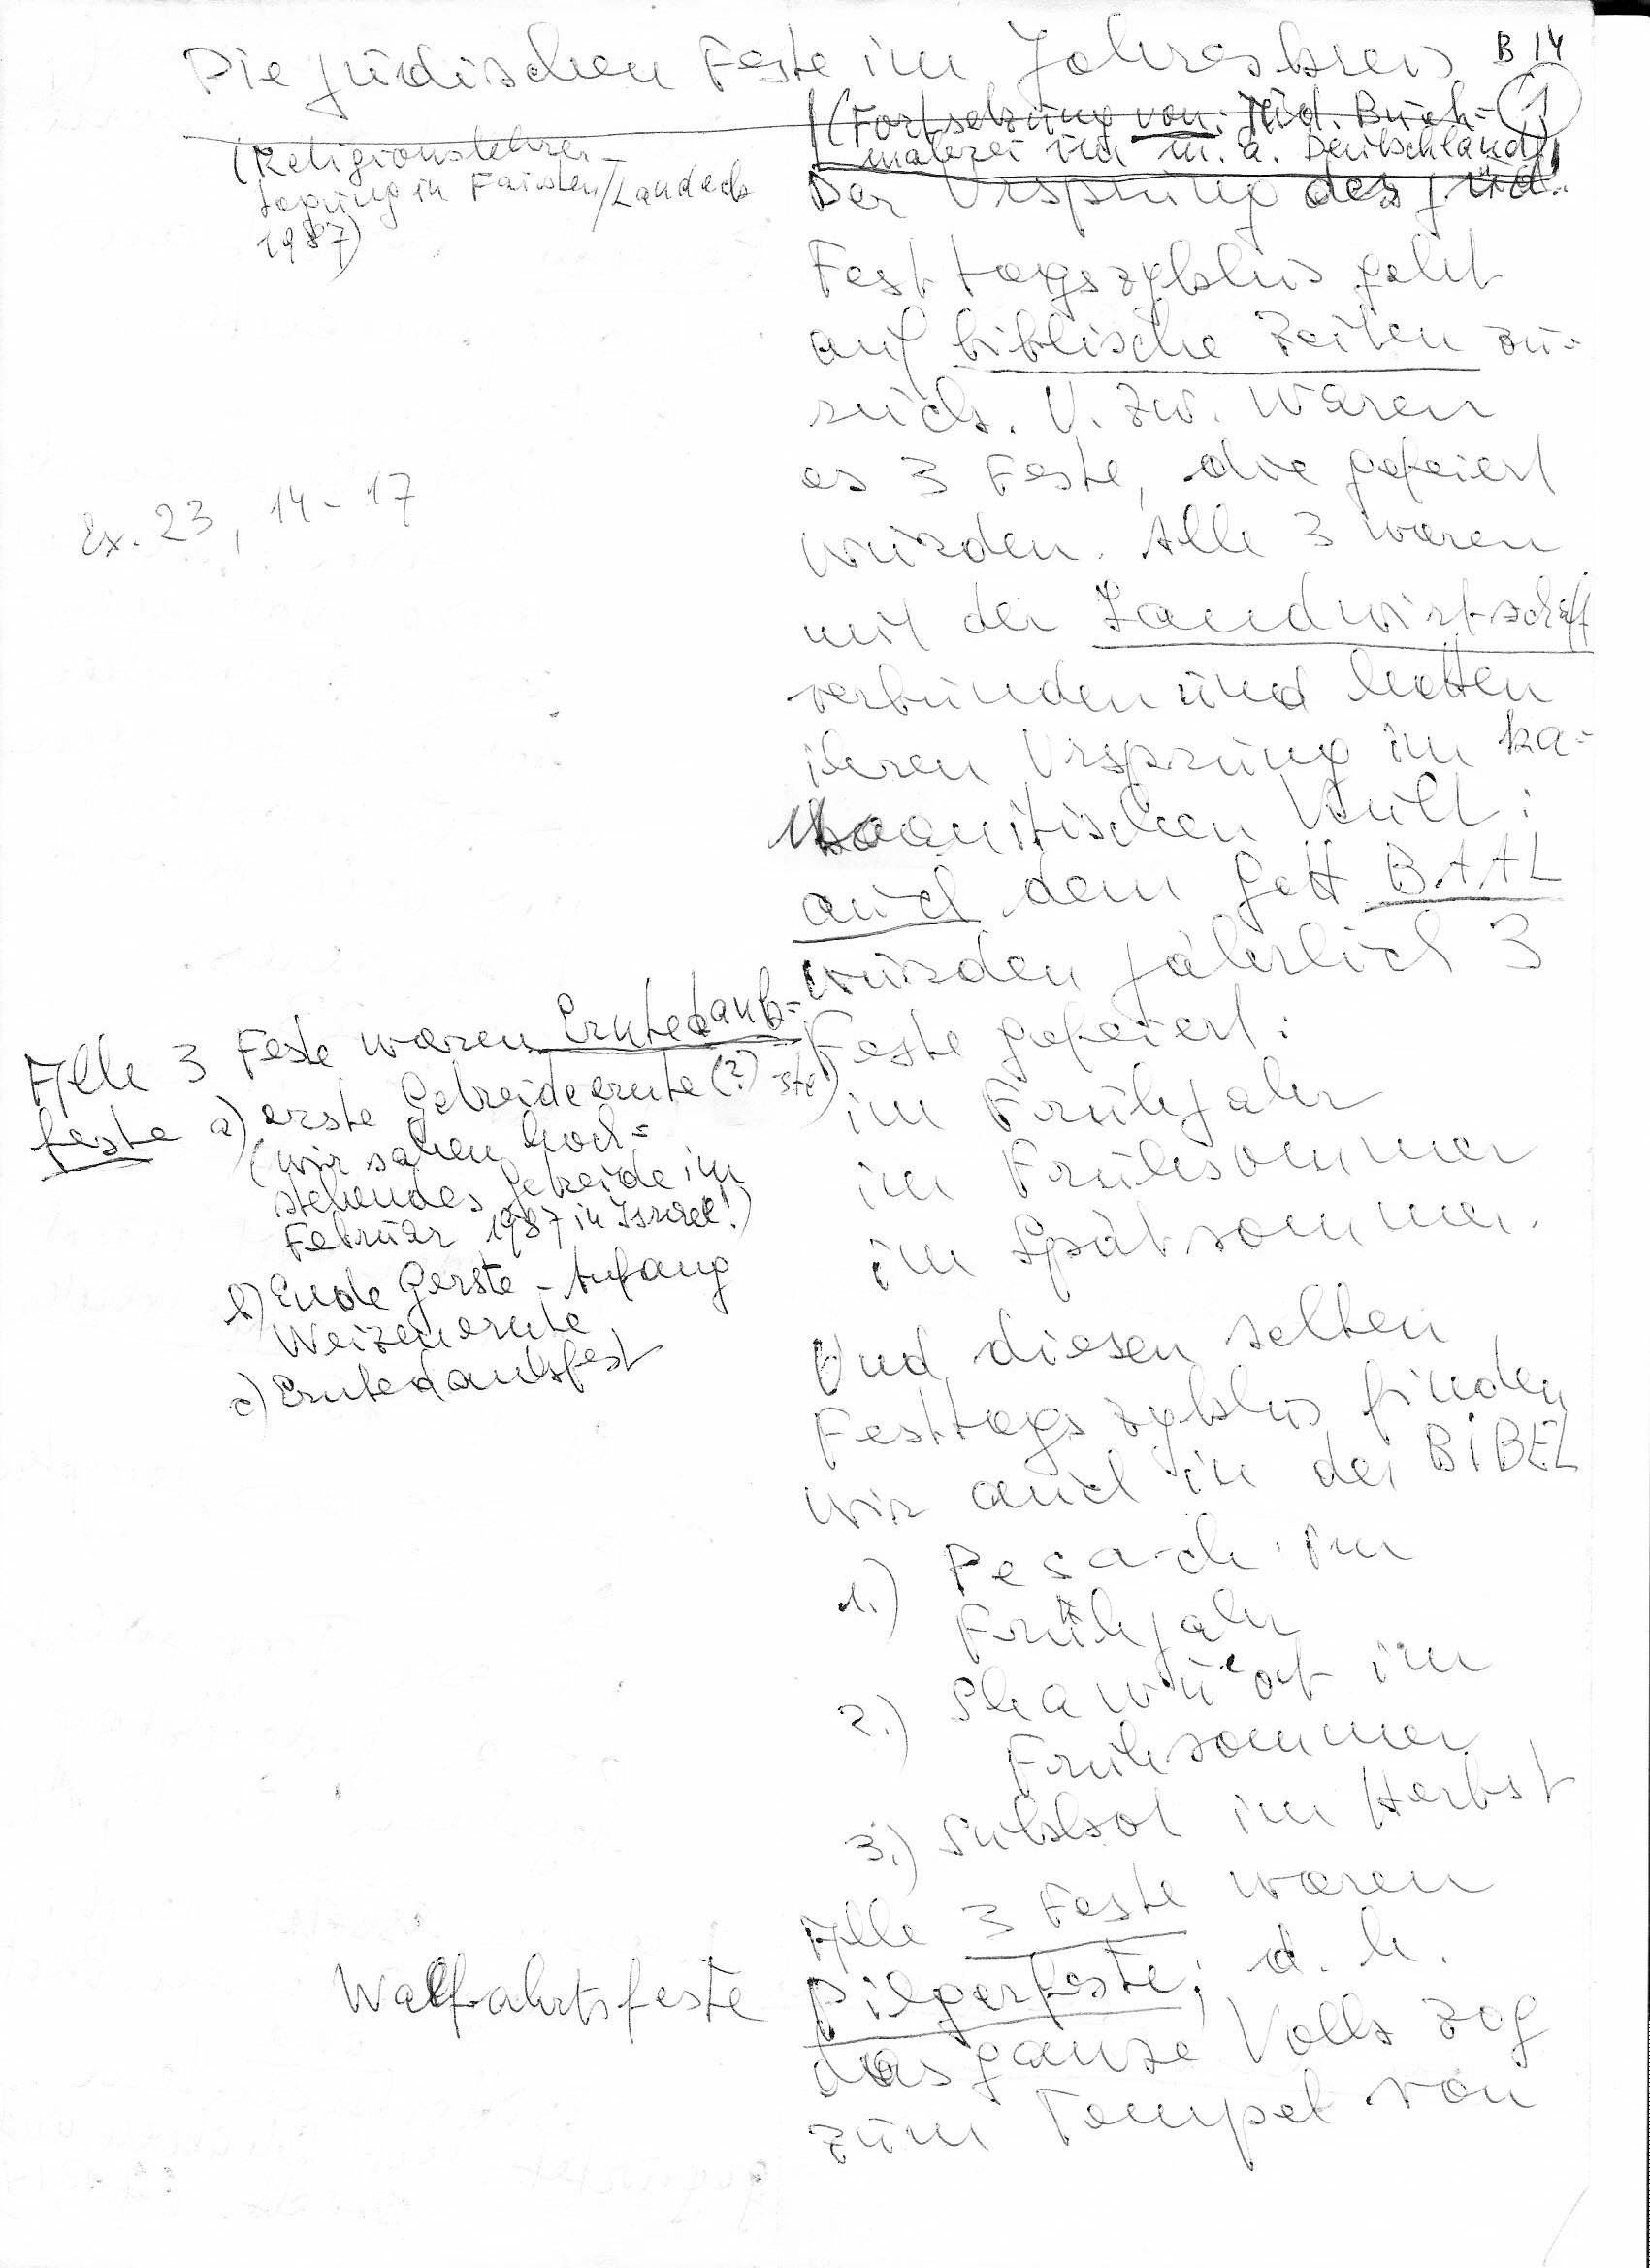 Die jüdischen Feste im Jahreskreis
B 14
1
(Religionslehrer-
tagung in Faisten/Landeck
1987)
(Fortsetzung von: Jüd. Buch=
malerei im m. a. Deutschland)
Der Ursprung des jüd.
Festtagszyklus geht
auf biblische Zeiten zu=
rück. U. zw. waren
es 3 Feste, die gefeiert
wurden. Alle 3 waren
mit der Landwirtschaft
verbunden und hatten
ihren Ursprung im ka=
naanitischen Kult:
auch dem Gott BAAL
wurden jährlich 3
Feste gefeiert:
im Frühjahr
im Frühsommer
im Spätsommer.
Und diesen selben
Festtagszyklus finden
wir auch in der BIBEL
1.) Pesach im
Frühjahr
2.) Shawu'ot im
Frühsommer
3.) Sukkot im Herbst
Alle 3 Feste waren
Pilgerfeste; d. h.
das ganze Volk zog
zum Tempel von
Ex. 23, 14-17
Alle 3 Feste waren Erntedank=
feste a) erste Getreideernte (?)
(wir sahen hoch=
stehendes Getreide im
Februar 1987 in Israel!)
b) Ende Gerste - Anfang
Weizenernte
c) Erntedankfest
Wallfahrtsfeste